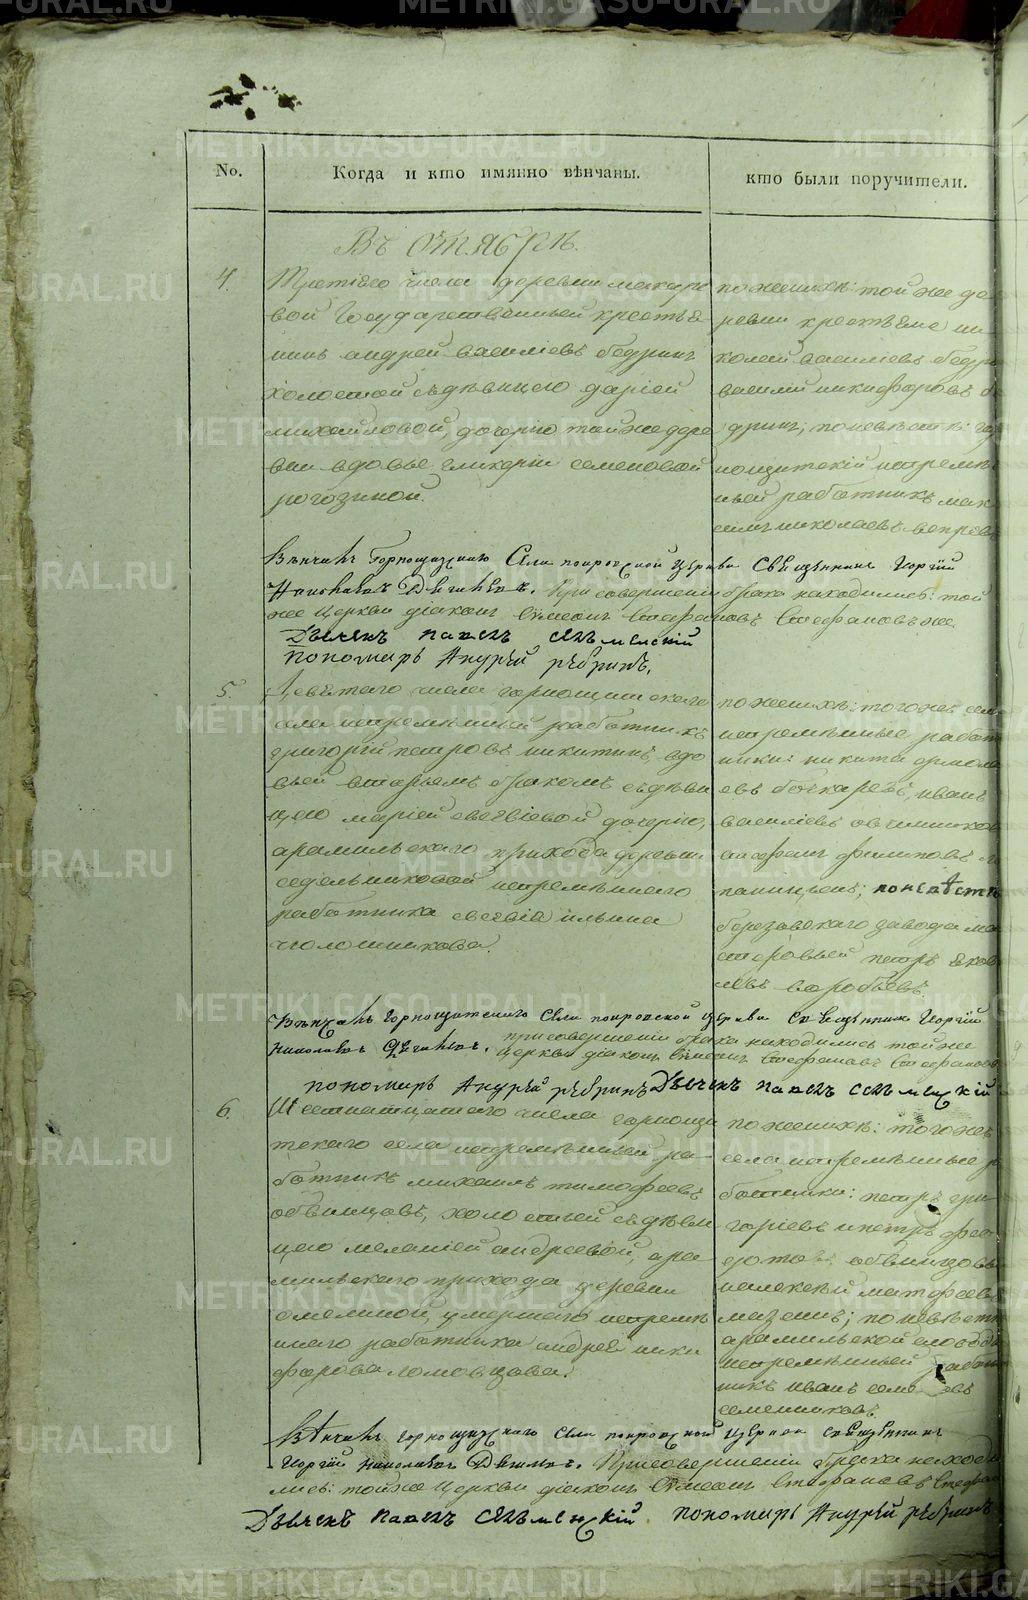 METRIKI.GASO-URAL.RU
No.
Когда и кто имянно вѣнчаны.
кто были поручители.
Въ октябрѣ.
4.
Третiего числа деревни макаро
вой государственный крестья
нинъ андрей василiевъ бедринъ
холостой съ дѣвицею дарiей
михайловой, дочерью той же дере
вни вдовы гликерiи семеновой
рогозиной.
по женихѣ: той же де
ревни крестьяне ни
колай василiевъ бедри
василiй никифоровъ бе
дринъ; по невѣстѣ: гор
нощитскiй непремѣн
ный работникъ мак
симъ николаевъ
Вѣнчалъ Горнощитскаго Села покровской церкви Священникъ Георгiй
Николаевъ Дягилевъ. При совершенiи брака находились: той
же церкви дiаконъ Симеонъ Стефановъ Стефановъ же
Дьячекъ павелъ
Пономарь Андрей рѣбринъ.
5.
Девятаго числа горнощитскаго
села непремѣнный работникъ
григорiй петровъ никитинъ, вдо
вый вторымъ бракомъ съ дѣви
цею марiей дочерью,
арамильскаго прихода деревни
седельниковой непремѣннаго
работника ильина
по женихѣ: того же села
непремѣнные работ
ники: никита ермола
евъ бочкаревъ, иванъ
василiевъ овчинников
филиповъ
по невѣстѣ
березовскаго завода ма
стеровый петръ яков
левъ воробьевъ.
Вѣнчалъ горнощитскаго Села покровской церкви священникъ Георгiй
Николаевъ Дягилевъ. при совершенiи брака находились той же
церкви дiаконъ Симеонъ Стефановъ Стефановъ
пономарь Андрей рѣбринъ Дьячекъ павелъ
6.
Шестнатцатаго числа горнощи
тскаго села непремѣнный ра-
ботникъ михаилъ тимофеевъ
обвинцовъ, холостый съ дѣви
цею меланiей андреевой, ара
мильскаго прихода деревни
умершаго непремѣн
наго работника андрея ники
форова ломовцава.
по женихѣ: того же
села непремѣнные р
ботники: петръ гри
горiевъ и петръ фео
дотовъ обвинцовы
и алексѣй матфеевъ
мазеинъ; по невѣстѣ
арамильской слободы
непремѣнный работ
никъ иванъ семеновъ
Вѣнчалъ горнощитскаго Села покровской церкви священникъ
Георгiй Николаевъ Дягилевъ. При совершенiи брака находи
лись: той же церкви дiаконъ Симеонъ Стефановъ Стефан
Дьячекъ павелъ пономарь Андрей рѣбринъ